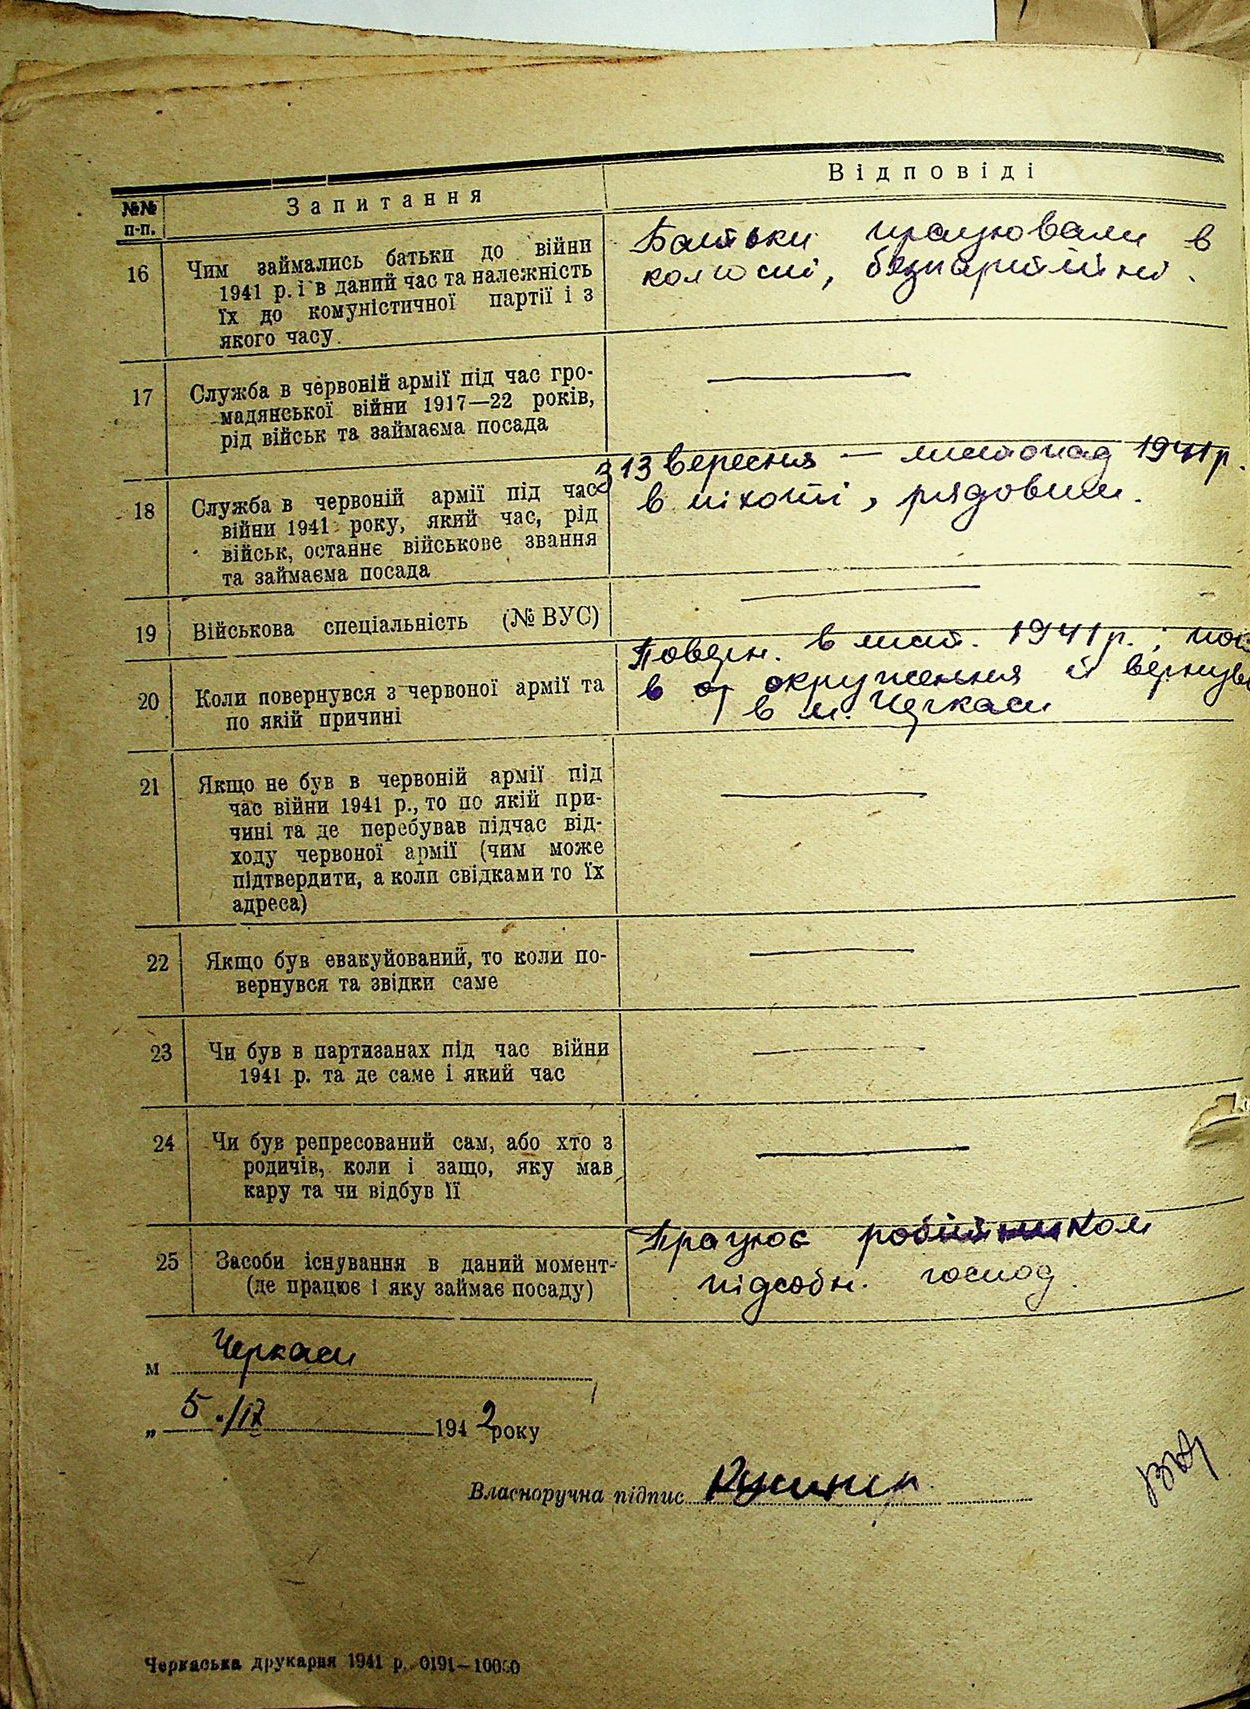 №№ п-п.
Запитання
Відповіді
16
Чим займались батьки до війни
1941 р. і в даний час та належність
їх до комуністичної партії і з
якого часу.
Батьки працювали в
колгоспі, безпартійні.
17
Служба в червоній армії під час гро-
мадянської війни 1917—22 років,
рід військ та займаєма посада
18
Служба в червоній армії під час
війни 1941 року, який час, рід
військ, останнє військове звання
та займаєма посада
з 13 вересня — листопад 1941 р.
в піхоті, рядовим.
19
Військова спеціальність (№ ВУС)
20
Коли повернувся з червоної армії та
по якій причині
Поверн. в лист. 1941 р.;
в окруження й вернувся
в м. Черкаси
21
Якщо не був в червоній армії під
час війни 1941 р., то по якій при-
чині та де перебував підчас від-
ходу червоної армії (чим може
підтвердити, а коли свідками то їх
адреса)
22
Якщо був евакуйований, то коли по-
вернувся та звідки саме
23
Чи був в партизанах під час війни
1941 р. та де саме і який час
24
Чи був репресований сам, або хто з
родичів, коли і защо, яку мав
кару та чи відбув її
25
Засоби існування в даний момент-
(де працює і яку займає посаду)
Працює робітником
підсобн. господ.
м Черкаси
„ 5./IV 1942 року
Власноручна підпис
Черкаська друкарня 1941 р. 0191—10000